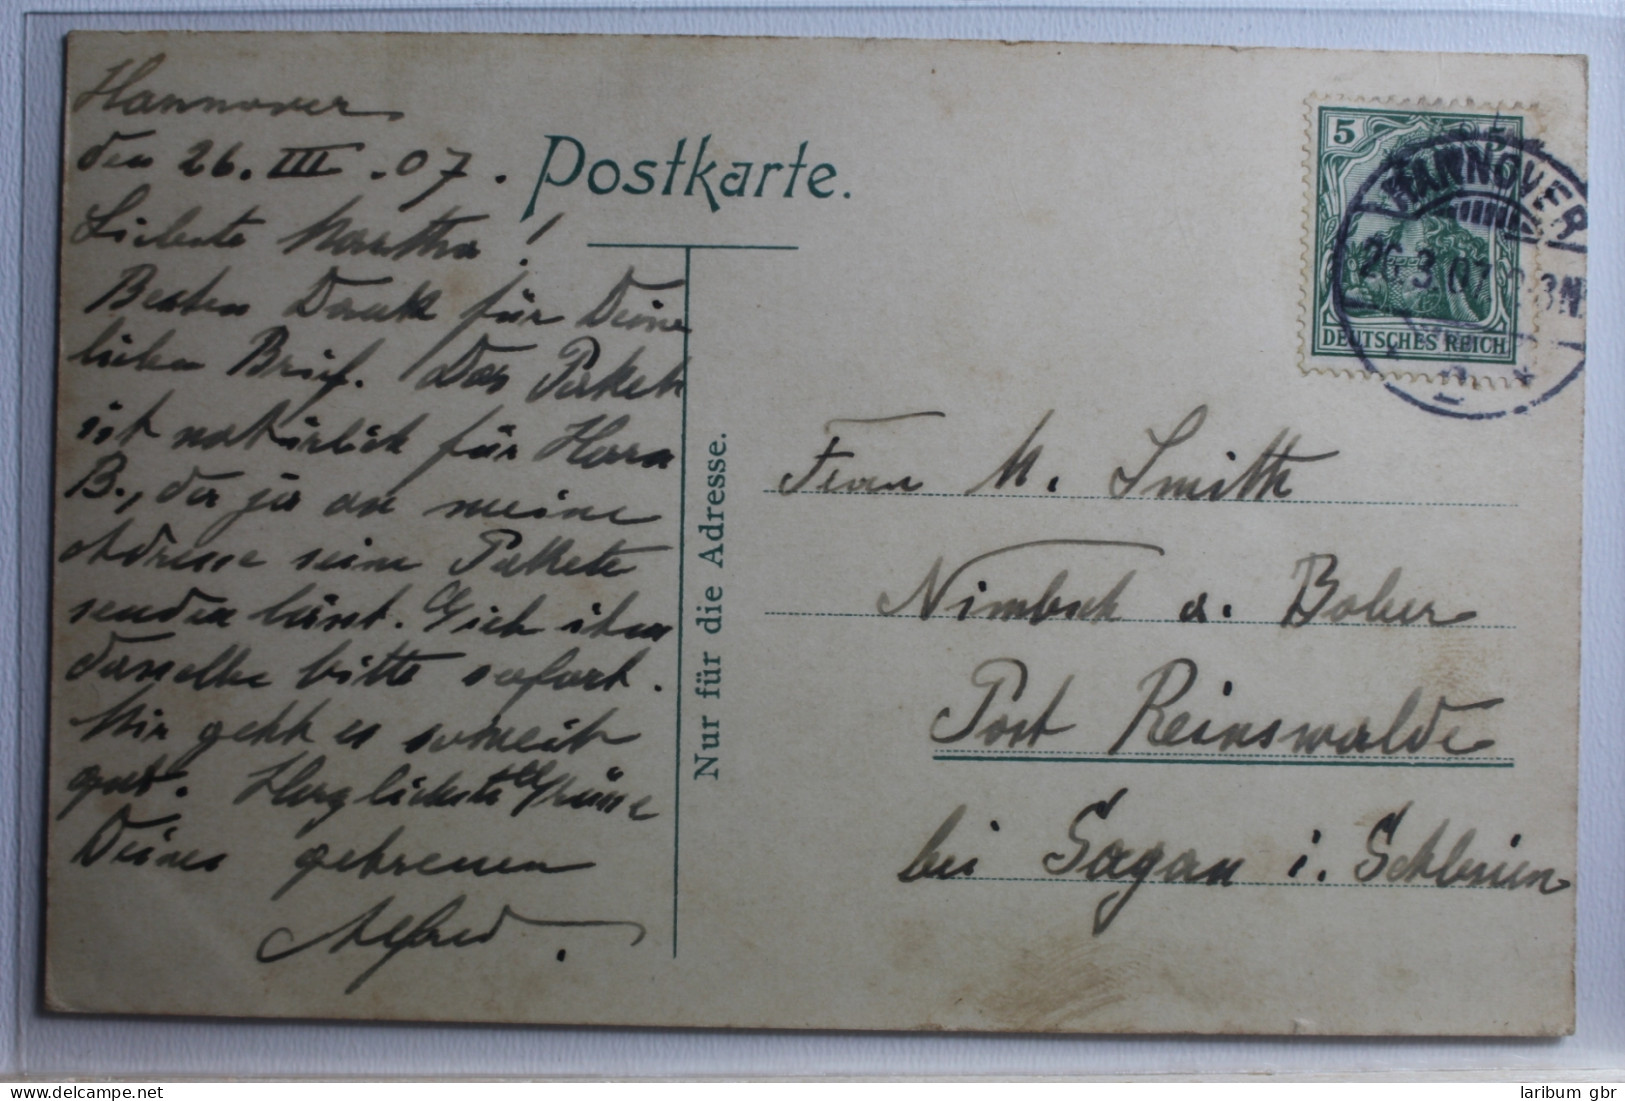 Hannover
den 26. III. 07.
Liebste Martha!
Besten Dank für Deine
lieben Brief. Das Paket
ist natürlich für Herrn
B., der ja an meine
Adresse seine Pakete
senden lässt. Gieb ihm
dasselbe bitte sofort.
Mir geht es soweit
gut. Herzlichste Grüsse
Deines getreuen
Alfred.
Postkarte.
Nur für die Adresse.
5
DEUTSCHES REICH
HANNOVER
26.3.07
Frau M. Smith
Nimbsch a. Bober
Post Reinswalde
bei Sagan i. Schlesien
laribum gbr